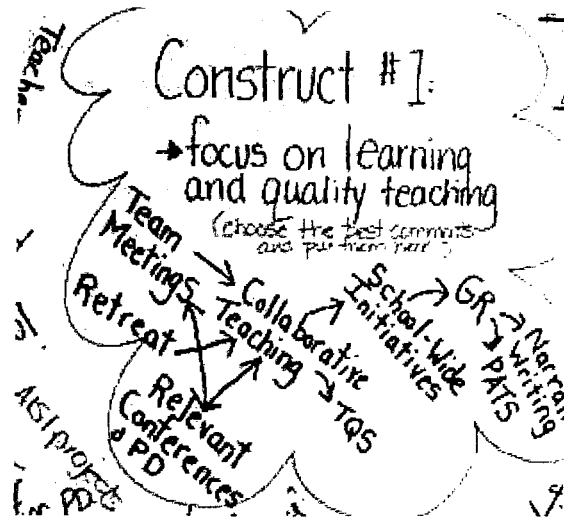 Construct #1:
→ focus on learning
and quality teaching
(choose the best comments
and put them here)
Team
Meetings
Retreat
Relevant
Conferences
& PD
Collaborative
Teaching
TQS
School-Wide
Initiatives
GR
PATS
Narrati
Writing
Teache
AISI project
for PD